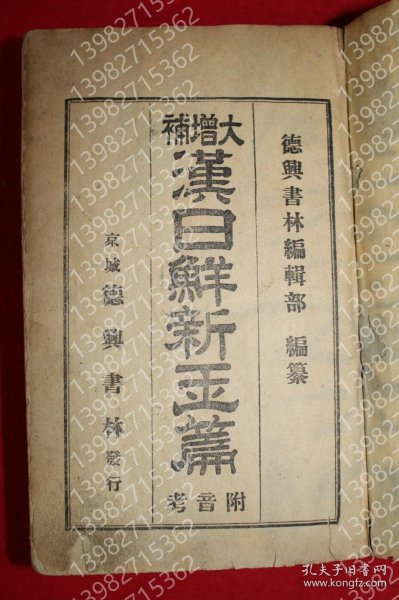 德興書林編輯部 編纂
大增補
漢日鮮新玉篇
附音考
京城 德興書林 發行
13982715362
孔夫子旧书网
www.kongfz.com